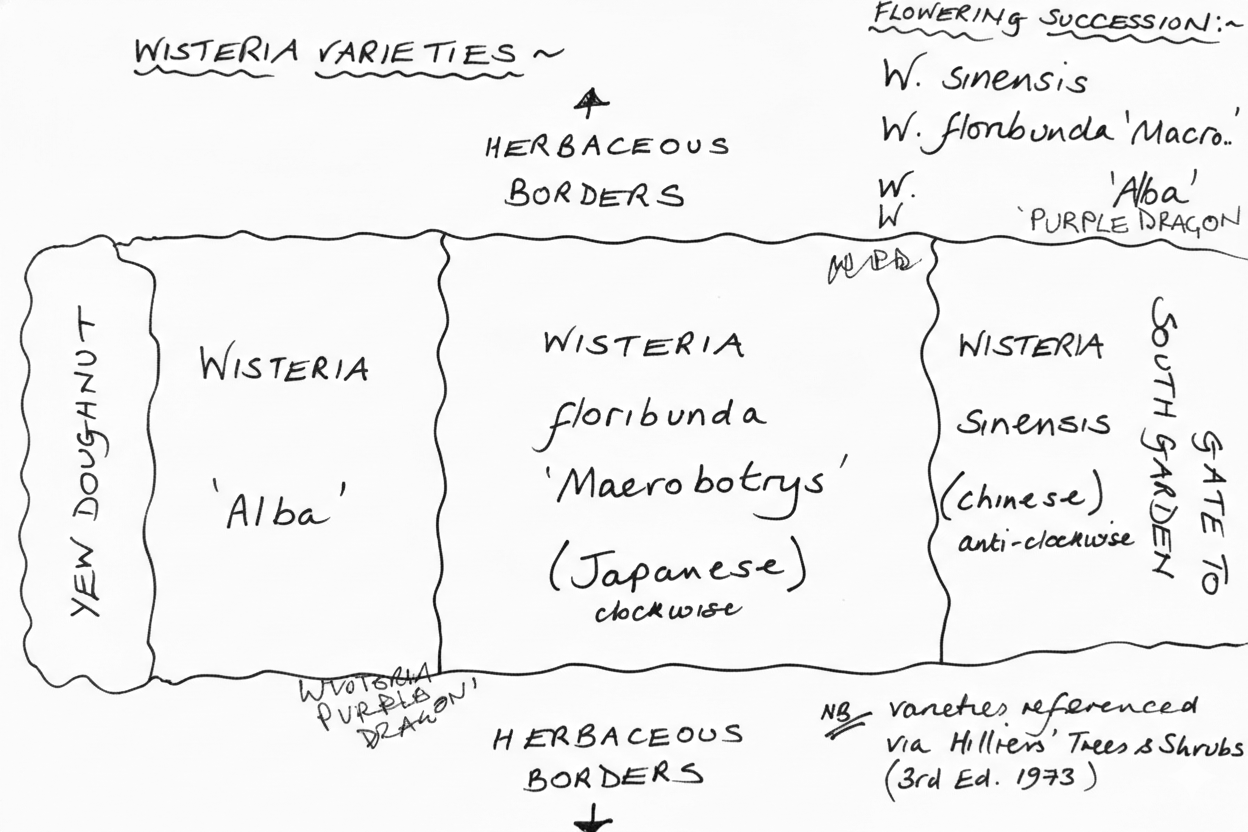 WISTERIA VARIETIES ~
FLOWERING SUCCESSION:~
W. sinensis
W. floribunda 'Macro..'
W. 'Alba'
W 'PURPLE DRAGON
HERBACEOUS
BORDERS
YEW DOUGHNUT
WISTERIA
'Alba'
WISTERIA
floribunda
'Macrobotrys'
(Japanese)
clockwise
WISTERIA
sinensis
(chinese)
anti-clockwise
SOUTH GARDEN
GATE TO
WISTERIA
PURPLE
DRAGON'
HERBACEOUS
BORDERS
NB varieties referenced
via Hilliers' Trees & Shrubs
(3rd Ed. 1973)